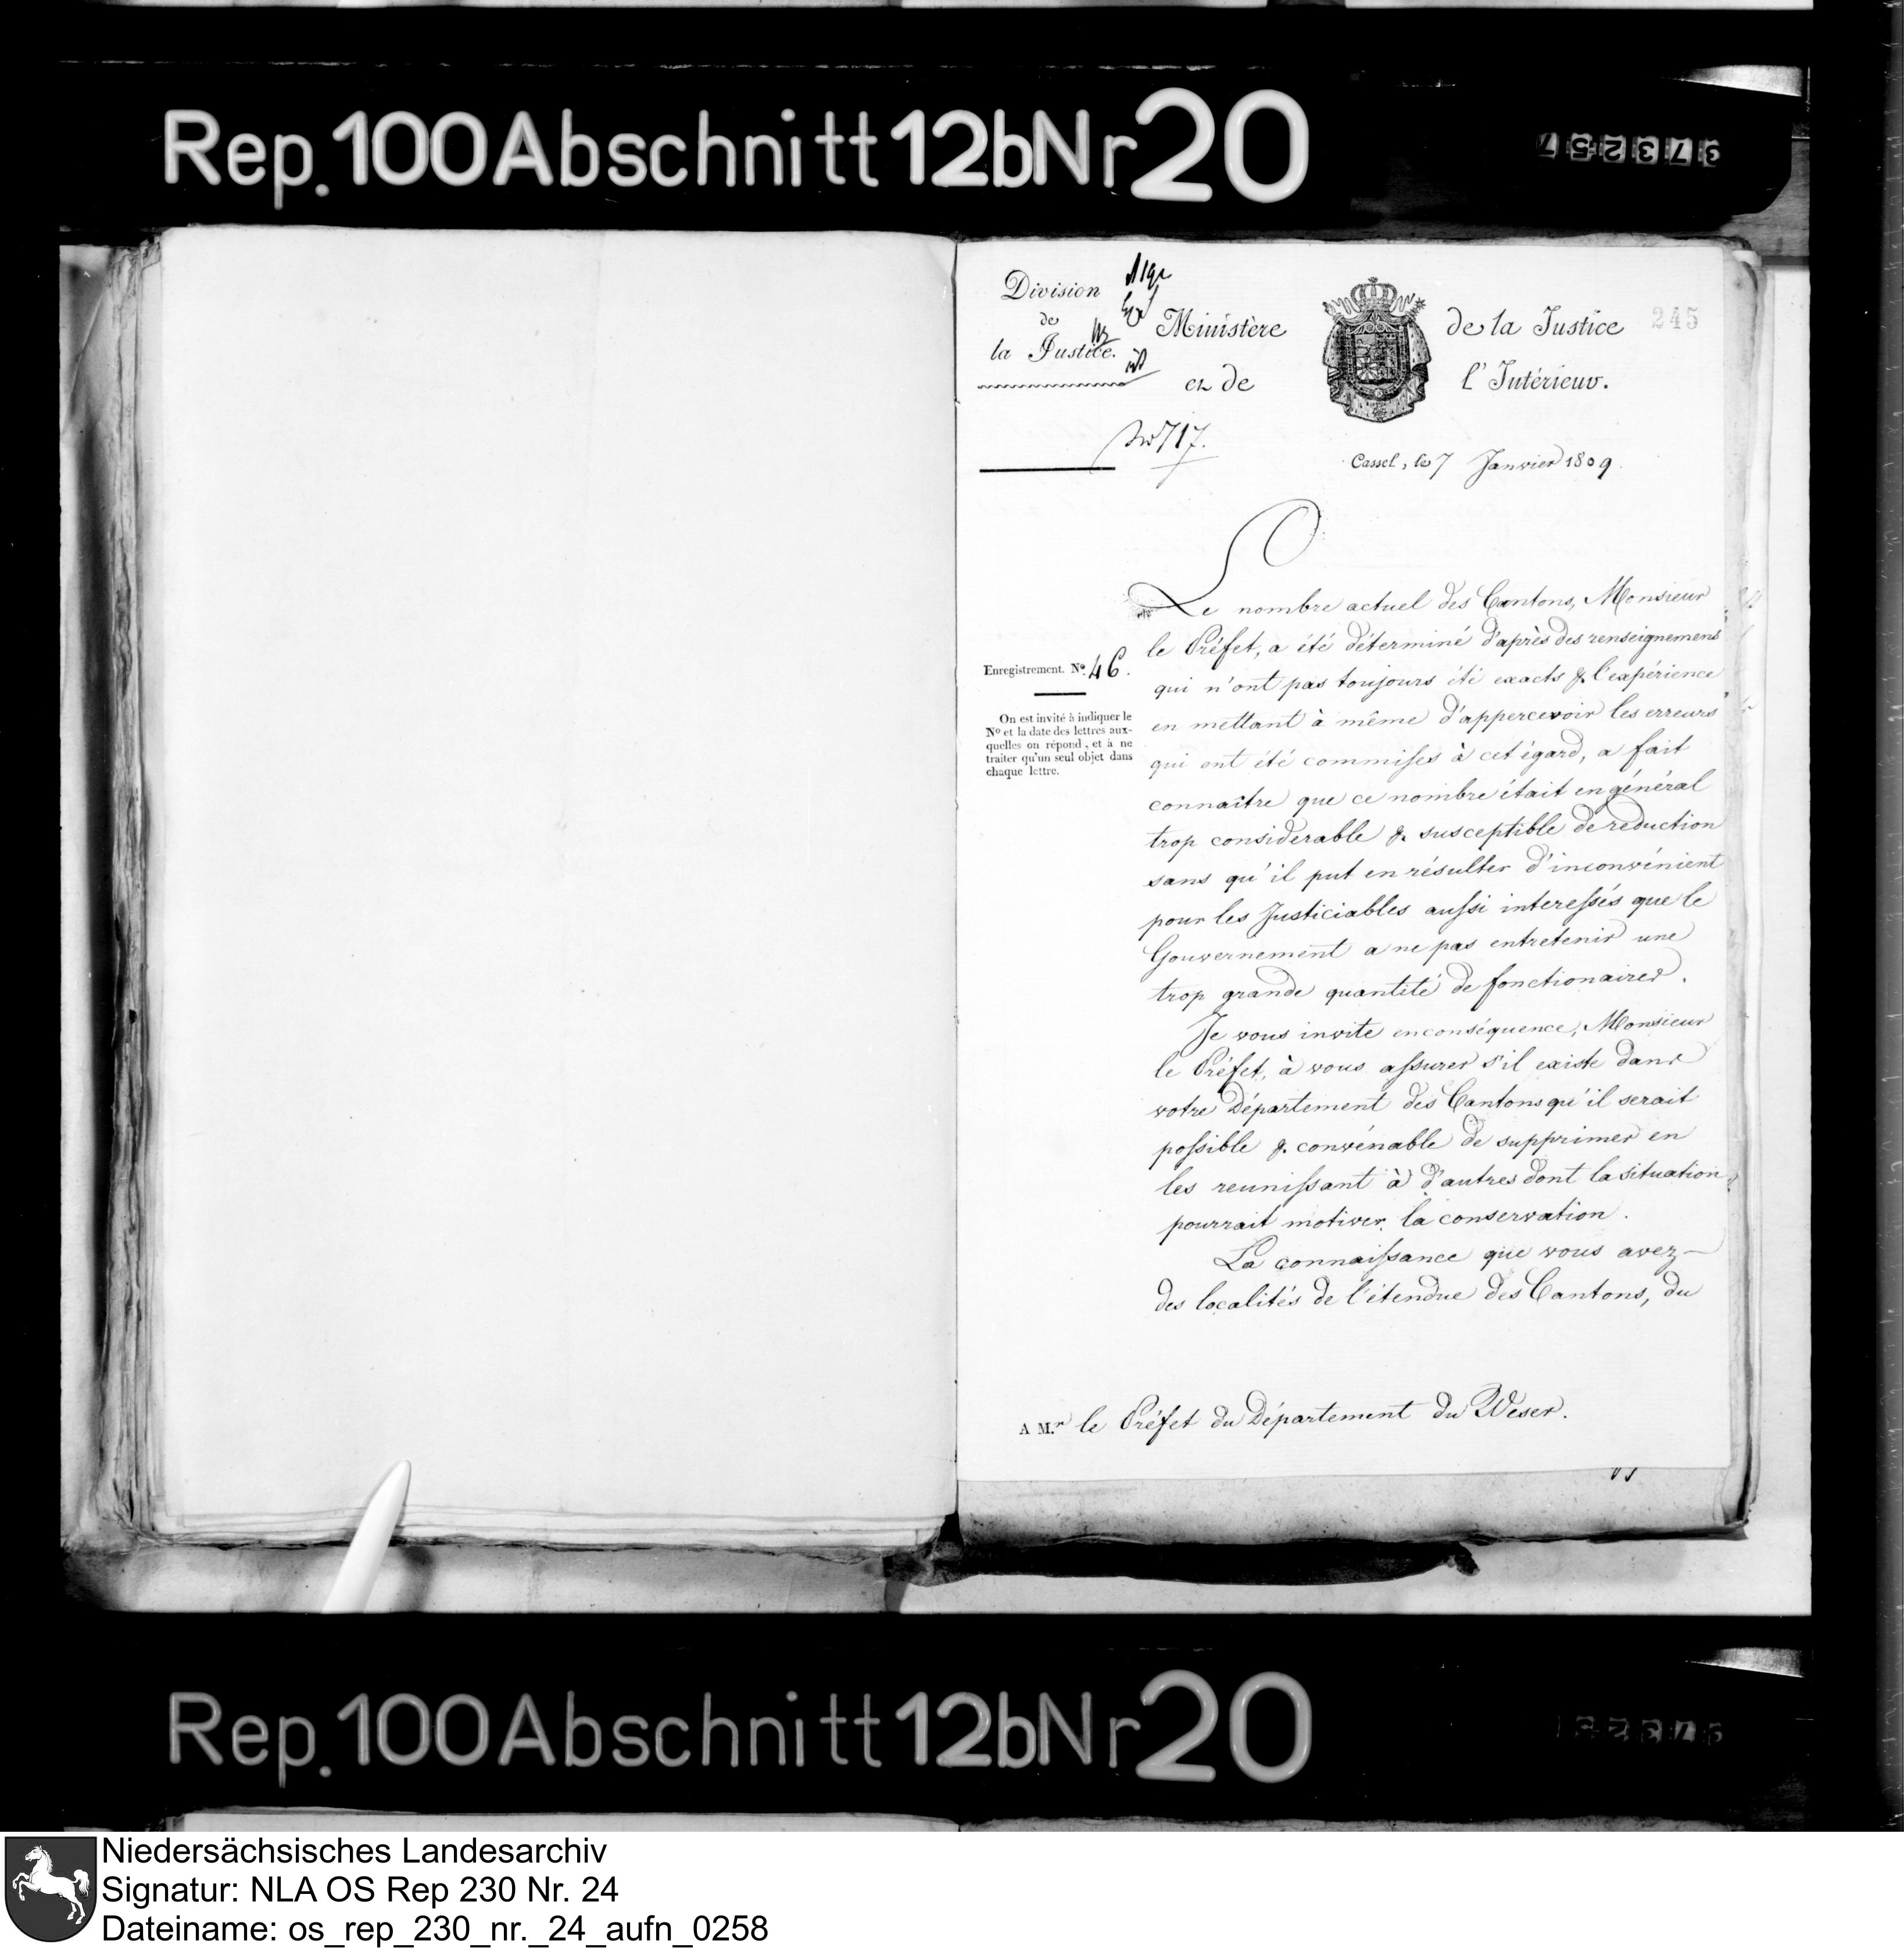 Rep. 100 Abschnitt 12b Nr 20
373257
Division
de
la Justice.
Ministère de la Justice
et de l'Intérieur.
245
717.
Cassel, le 7 Janvier 1809.
Le nombre actuel des Cantons, Monsieur
le Préfet, a été déterminé d'après des renseignemens
qui n'ont pas toujours été exacts & l'expérience
en mettant à même d'appercevoir les erreurs
qui ont été commises à cet égard, a fait
connaître que ce nombre était en général
trop considerable & susceptible de reduction
sans qu'il put en résulter d'inconvénient
pour les Justiciables aussi interessés que le
Gouvernement a ne pas entretenir une
trop grande quantité de fonctionaires.
Je vous invite en conséquence, Monsieur
le Préfet, à vous assurer s'il existe dans
votre Département des Cantons qu'il serait
possible & convénable de supprimer en
les reunissant à d'autres dont la situation
pourrait motiver la conservation.
La connaissance que vous avez
des localités de l'étendue des Cantons, du
Enregistrement. Nº. 46.
On est invité à indiquer le
Nº et la date des lettres aux-
quelles on répond, et à ne
traiter qu'un seul objet dans
chaque lettre.
A M.r le Préfet du Département du Weser.
Rep. 100 Abschnitt 12b Nr 20
Niedersächsisches Landesarchiv
Signatur: NLA OS Rep 230 Nr. 24
Dateiname: os_rep_230_nr._24_aufn_0258